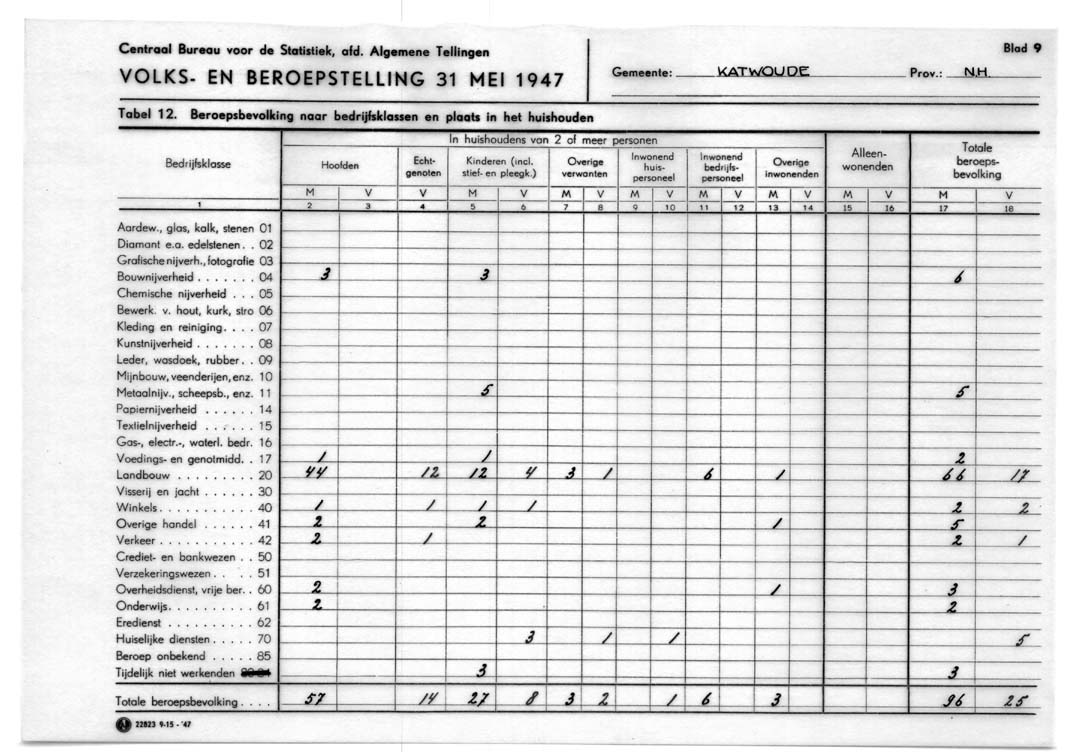 Centraal Bureau voor de Statistiek, afd. Algemene Tellingen
Blad 9
VOLKS- EN BEROEPSTELLING 31 MEI 1947
Gemeente: KATWOUDE Prov.: N.H.
Tabel 12. Beroepsbevolking naar bedrijfsklassen en plaats in het huishouden
In huishoudens van 2 of meer personen
Bedrijfsklasse Hoofden Echt-genoten Kinderen (incl. stief- en pleegk.) Overige verwanten Inwonend huis-personeel Inwonend bedrijfs-personeel Overige inwonenden Alleen-wonenden Totale beroeps-bevolking
M V V M V M V M V M V M V M V M V
1 2 3 4 5 6 7 8 9 10 11 12 13 14 15 16 17 18
Aardew., glas, kalk, stenen 01
Diamant e.a. edelstenen . . 02
Grafische nijverh., fotografie 03
Bouwnijverheid . . . . . . . 04 3 3 6
Chemische nijverheid . . . 05
Bewerk. v. hout, kurk, stro 06
Kleding en reiniging. . . . 07
Kunstnijverheid . . . . . . . 08
Leder, wasdoek, rubber. . 09
Mijnbouw, veenderijen, enz. 10
Metaalnijv., scheepsb., enz. 11 5 5
Papiernijverheid . . . . . . 14
Textielnijverheid . . . . . . 15
Gas-, electr.-, waterl. bedr. 16
Voedings- en genotmidd. . 17 1 1 2
Landbouw . . . . . . . . . 20 44 12 12 4 3 1 6 1 66 17
Visserij en jacht . . . . . . 30
Winkels. . . . . . . . . . . 40 1 1 1 1 2 2
Overige handel . . . . . . 41 2 2 1 5
Verkeer . . . . . . . . . . . 42 2 1 2 1
Crediet- en bankwezen . . 50
Verzekeringswezen. . . . 51
Overheidsdienst, vrije ber. . 60 2 1 3
Onderwijs. . . . . . . . . . 61 2 2
Eredienst . . . . . . . . . . 62
Huiselijke diensten . . . . . 70 3 1 1 5
Beroep onbekend . . . . . 85
Tijdelijk niet werkenden 3 3
Totale beroepsbevolking . . . . 57 14 27 8 3 2 1 6 3 96 25
22823 9-15 - '47